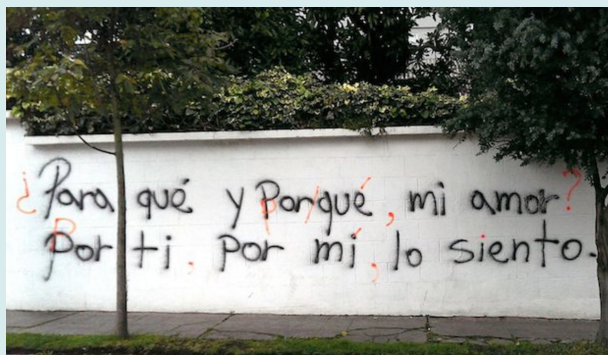 ¿Para qué y por qué, mi amor?
Por ti, por mí, lo siento.